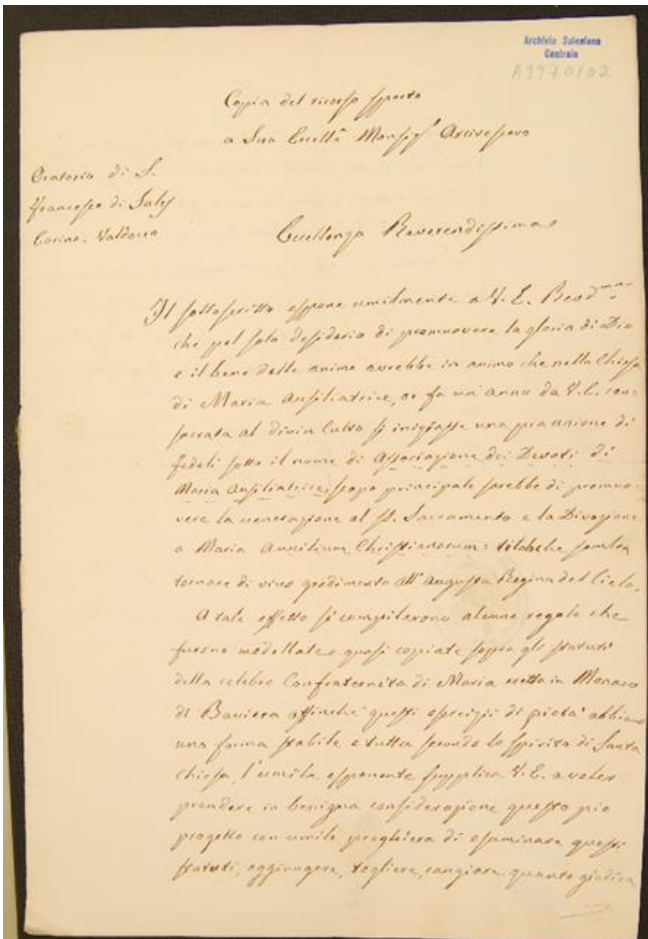 Archivio Salesiano
Centrale
A4970102
Copia del ricorso sporto
a Sua Eccellᵃ Monsigʳ Arcivescovo
Oratorio di S.
Francesco di Sales
Torino - Valdocco
Eccellenza Reverendissima
Il sottoscritto espone umilmente a V. E. Revdᵐᵃ
che pel solo desiderio di promuovere la gloria di Dio
e il bene delle anime avrebbe in animo che nella Chiesa
di Maria Ausiliatrice, or fa un anno da V. E. con-
sacrata al divin Culto si iniziasse una pia unione di
fedeli sotto il nome di Associazione dei Devoti di
Maria Ausiliatrice: scopo principale sarebbe di promuo-
vere la venerazione al SS. Sacramento e la Divozione
a Maria Auxilium Christianorum: titolo che sembra
tornare di vivo gradimento all'Augusta Regina del Cielo.
A tale effetto si compilarono alcune regole che
furono modellate e quasi copiate sopra gli statuti
della celebre Confraternita di Maria eretta in Monaco
di Baviera affinchè questi esercizi di pietà abbiano
una forma stabile e tutta secondo lo spirito di Santa
Chiesa, l'umile esponente supplica V. E. a voler
prendere in benigna considerazione questo pio
progetto con umile preghiera di esaminare questi
statuti, aggiungere, togliere, cangiare, quanto giudica